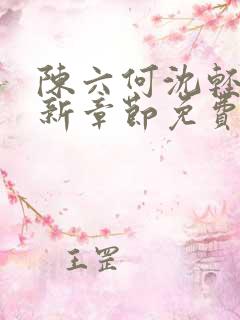 陳六何沈輕
新章節免費
王罡